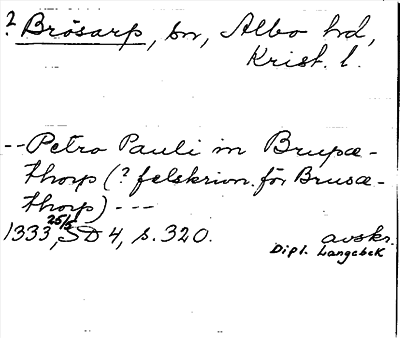 ? Brösarp, sn, Albo hd,
Krist. l.
--Petro Pauli in Brupæ-
thorp (? felskrivn. för Brusæ-
thorp) ---
1333 25/5, SD 4, s. 320. avskr.
Dipl. Langebek